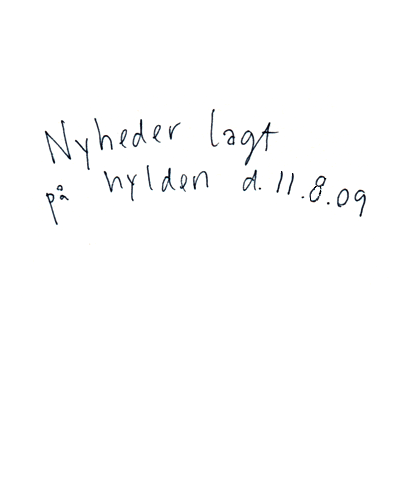 Nyheder lagt
på hylden d. 11.8.09